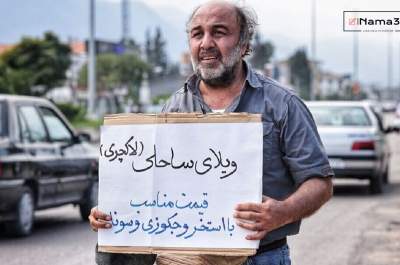 Nama3
ویلای ساحلی (لاکچری)
قیمت مناسب
با استخر و جکوزی و سونا